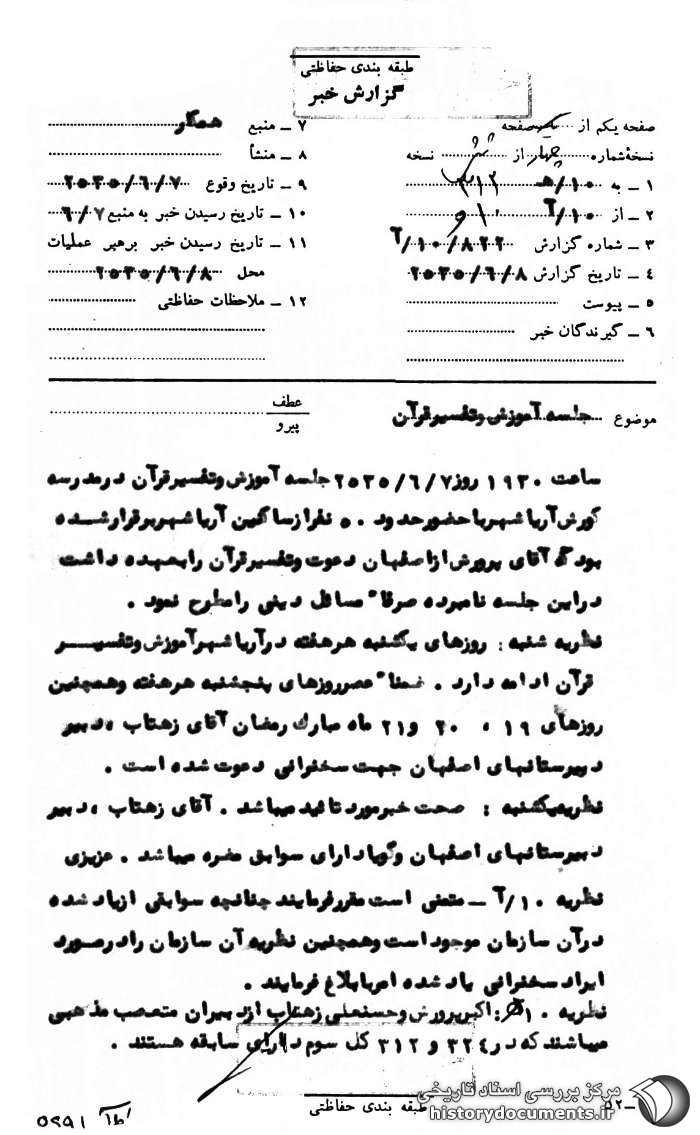 طبقه بندی حفاظتی
گزارش خبر
صفحه یکم از یک صفحه
نسخهٔ شماره چهار از شش نسخه
۱ ــ به ۱۰/هـ ۳۱۲
۲ ــ از ۱۰/آ
۳ ــ شماره گزارش ۸۲۲/۱۰/آ
۴ ــ تاریخ گزارش ۲۵۳۵/۶/۸
۵ ــ پیوست
۶ ــ گیرندگان خبر
۷ ــ منبع همکار
۸ ــ منشأ
۹ ــ تاریخ وقوع ۲۵۳۵/۶/۷
۱۰ ــ تاریخ رسیدن خبر به منبع ۶/۷
۱۱ ــ تاریخ رسیدن خبر برهبر عملیات
محل ۲۵۳۵/۶/۸
۱۲ ــ ملاحظات حفاظتی
موضوع جلسه آموزش وتفسیرقرآن
عطف
پیرو
ساعت ۱۹۳۰ روز ۲۵۳۵/۶/۷ جلسه آموزش وتفسیرقرآن درمدرسه
کورش آریا شهر با حضور حدود ۵۰ نفر از ساکنین آریا شهر برقرار شده
بود که آقای پرورش از اصفهان دعوت وتفسیرقرآن را بعهده داشت
دراین جلسه نامبرده صرفا" مسائل دینی را مطرح نمود .
نظریه شنبه : روزهای یکشنبه هرهفته در آریا شهر آموزش وتفسیر
قرآن ادامه دارد . ضمنا" عصر روزهای پنجشنبه هرهفته وهمچنین
روزهای ۱۹ ، ۲۰ و ۲۱ ماه مبارک رمضان آقای زهتاب ، دبیر
دبیرستانهای اصفهان جهت سخنرانی دعوت شده است .
نظریه یکشنبه : صحت خبر مورد تائید میباشد . آقای زهتاب ، دبیر
دبیرستانهای اصفهان وگویا دارای سوابق مضره میباشد . عزیزی
نظریه ۱۰/آ ــ متمنی است مقررفرمایند چنانچه سوابقی ازیاد شده
درآن سازمان موجود است وهمچنین نظریه آن سازمان را درصورد
ایراد سخنرانی یاد شده امر بابلاغ فرمایند .
نظریه ۱۰هـ : اکبر پرورش وحسنعلی زهتاب از دبیران متعصب مذهبی
میباشند که در ۳۲٤ و ۳۱۲ کل سوم دارای سابقه هستند .
طبقه بندی حفاظتی
۵۲ــ
مرکز بررسی اسناد تاریخی
historydocuments.ir